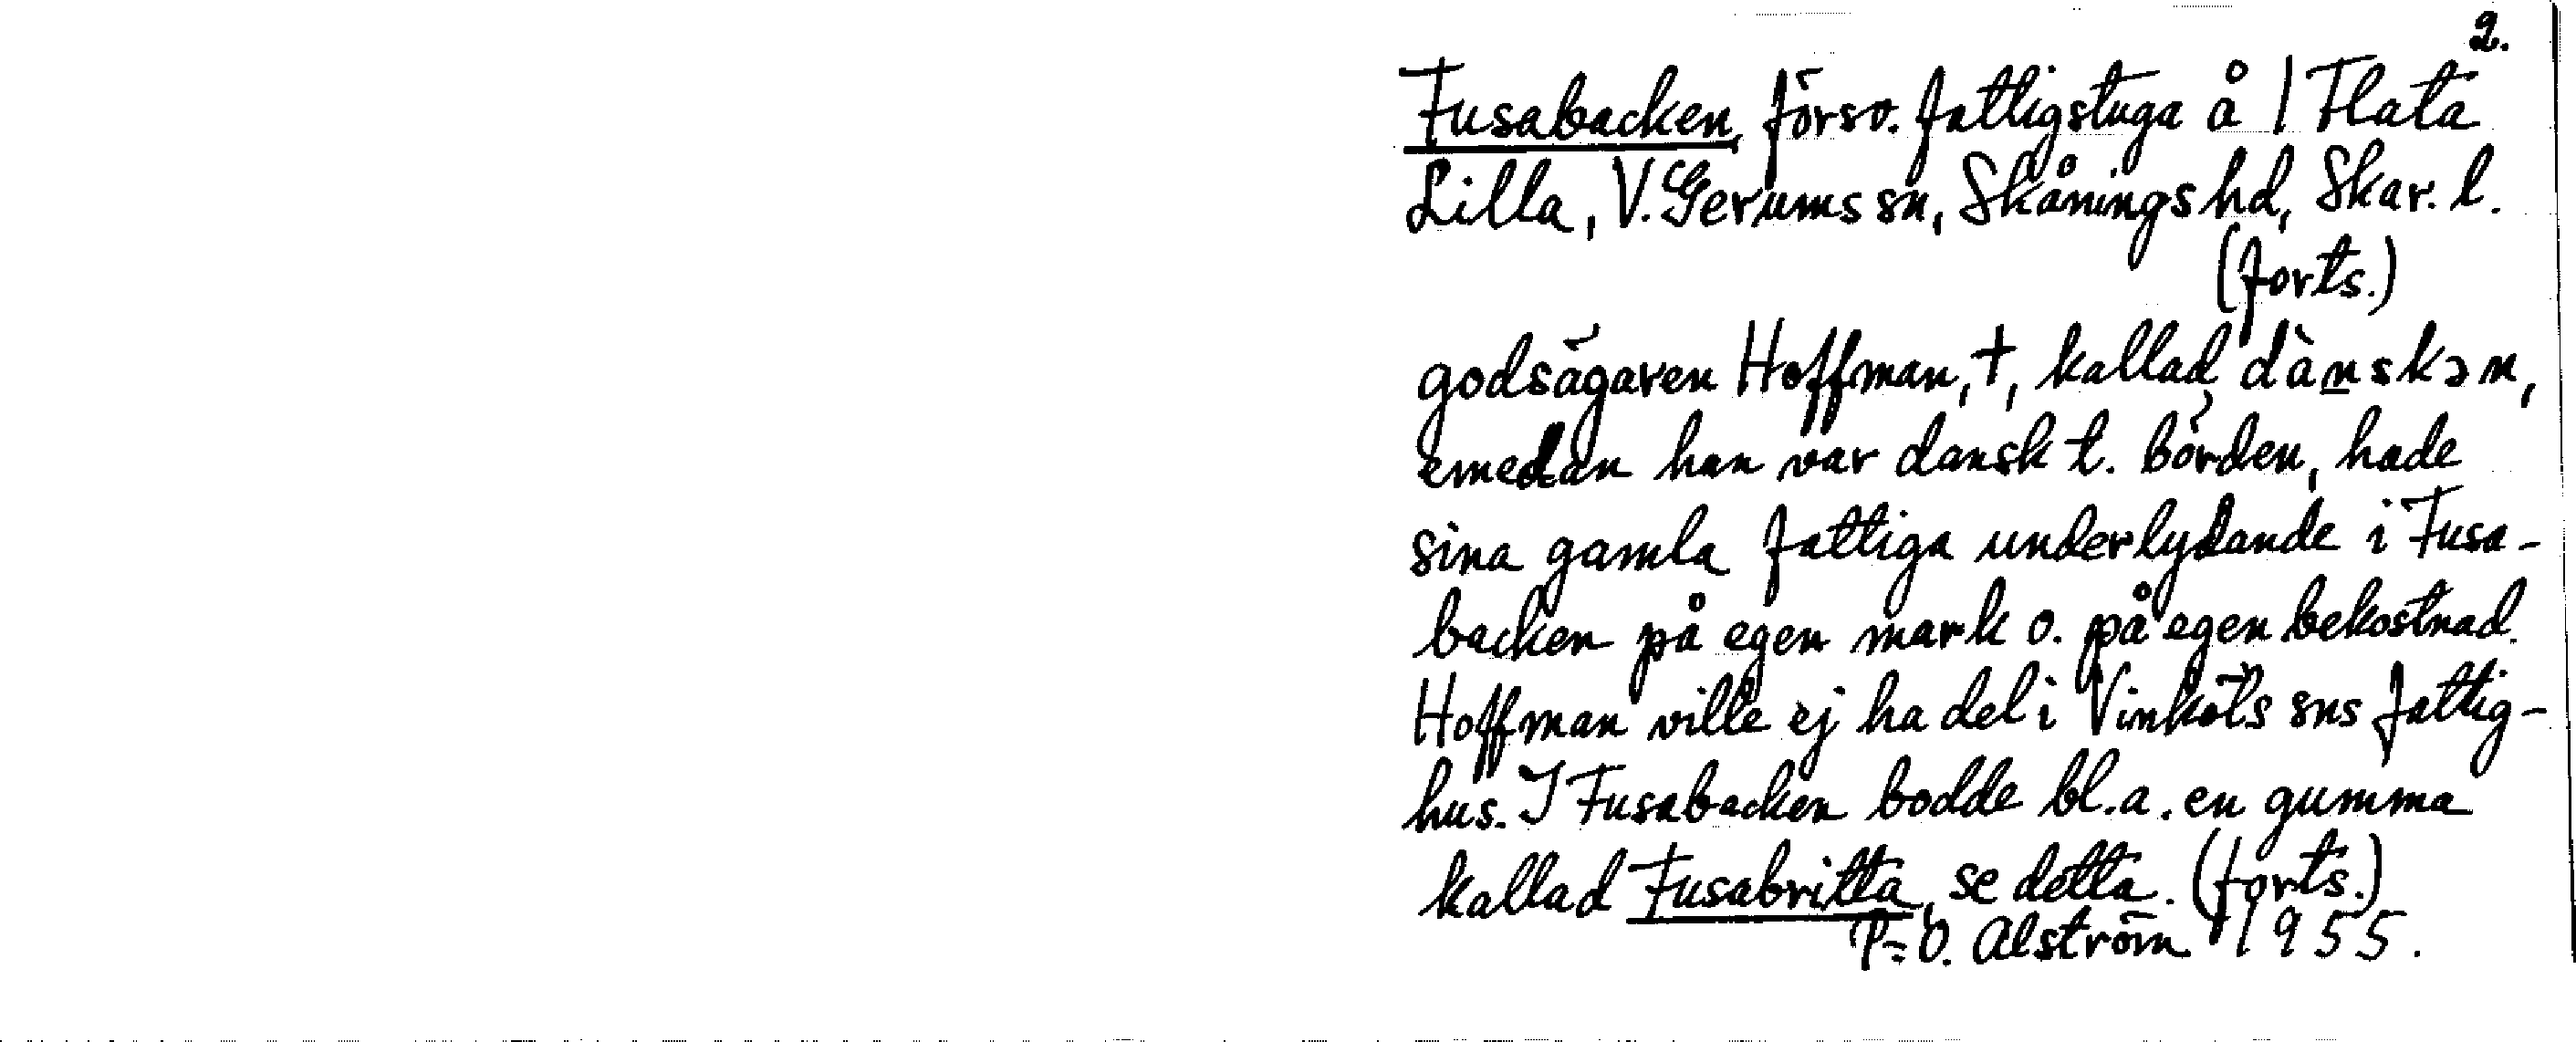 2.
Fusabacken, försv. fattigstuga å 1 Flata
Lilla, V. Gerums sn, Skånings hd, Skar. l.
(forts.)
godsägaren Hoffman, †, kallad dànskən,
emedan han var dansk t. börden, hade
sina gamla fattiga underlydande i Fusa-
backen på egen mark o. på egen bekostnad.
Hoffman ville ej ha del i Vinköls sns fattig-
hus. I Fusabacken bodde bl.a. en gumma
kallad Fusabritta, se detta. (forts.)
P-O. Alström 1955.